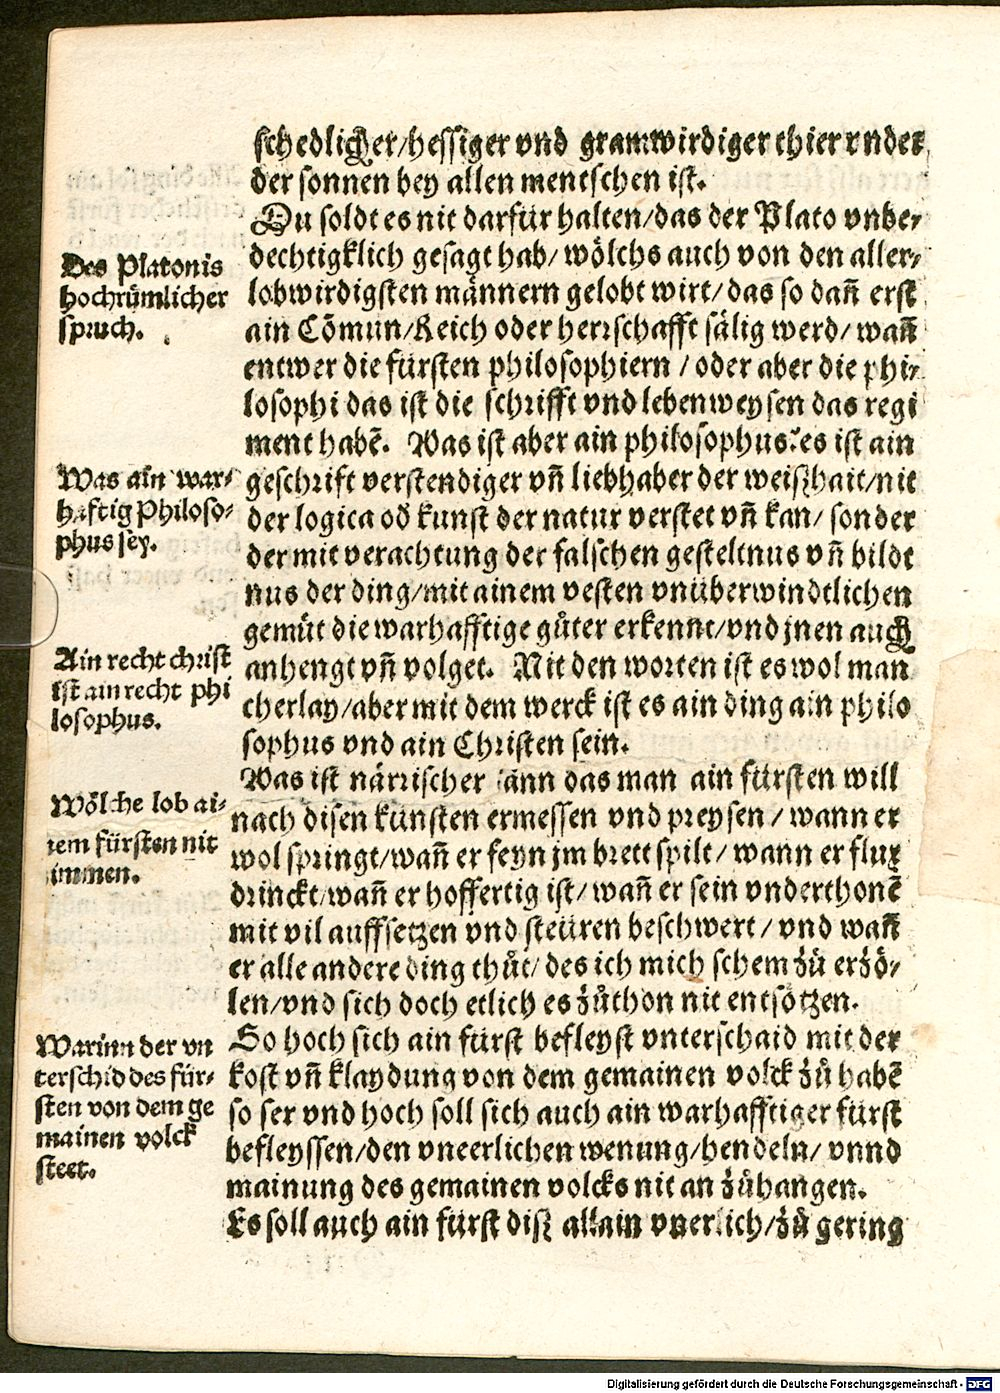 schedlicher/hessiger vnd gramwirdiger thier vnder
der sonnen bey allen mentschen ist.
Du soldt es nit darfür halten/das der Plato vnbe-
dechtigklich gesagt hab/ wölchs auch von den aller-
lobwirdigsten männern gelobt wirt/ das so dañ erst
ain Cõmun/Reich oder herrschafft sälig werd/ wañ
entwer die fürsten philosophiern / oder aber die phi-
losophi das ist die schrifft vnd lebenweysen das regi
ment habẽ. Was ist aber ain philosophus? es ist ain
geschrift verstendiger vñ liebhaber der weißhait/nit
der logica oð kunst der natur verstet vñ kan/ sonder
der mit verachtung der falschen gesteltnus vñ bildt
nus der ding/mit ainem vesten vnüberwindtlichen
gemüt die warhafftige güter erkennt/vnd jnen auch
anhengt vñ volget. Mit den worten ist es wol man
cherlay/aber mit dem werck ist es ain ding ain philo
sophus vnd ain Christen sein.
Was ist närrischer dann das man ain fürsten will
nach disen künsten ermessen vnd preysen / wann er
wol springt/wañ er feyn jm brett spilt/ wann er flux
drinckt/wañ er hoffertig ist/ wañ er sein vnderthonẽ
mit vil auffsetzen vnd steüren beschwert/ vnd wañ
er alle andere ding thůt/ des ich mich schem zů erzö-
len/vnd sich doch etlich es zůthon nit entsötzen.
So hoch sich ain fürst befleyst vnterschaid mit der
kost vñ klaydung von dem gemainen volck zů habẽ
so ser vnd hoch soll sich auch ain warhafftiger fürst
befleyssen/den vneerlichen wenung/hendeln/ vnnd
mainung des gemainen volcks nit an zůhangen.
Es soll auch ain fürst diß allain vnerlich/zů gering
Des Platonis
hochrümlicher
spruch.
Was ain war-
hafftig Philoso-
phus sey.
Ain recht christ
ist ain recht phi
losophus.
Wölche lob ai-
nem fürsten nit
zimmen.
Warinn der vn
terschid des für-
sten von dem ge
mainen volck
steet.
Digitalisierung gefördert durch die Deutsche Forschungsgemeinschaft - DFG